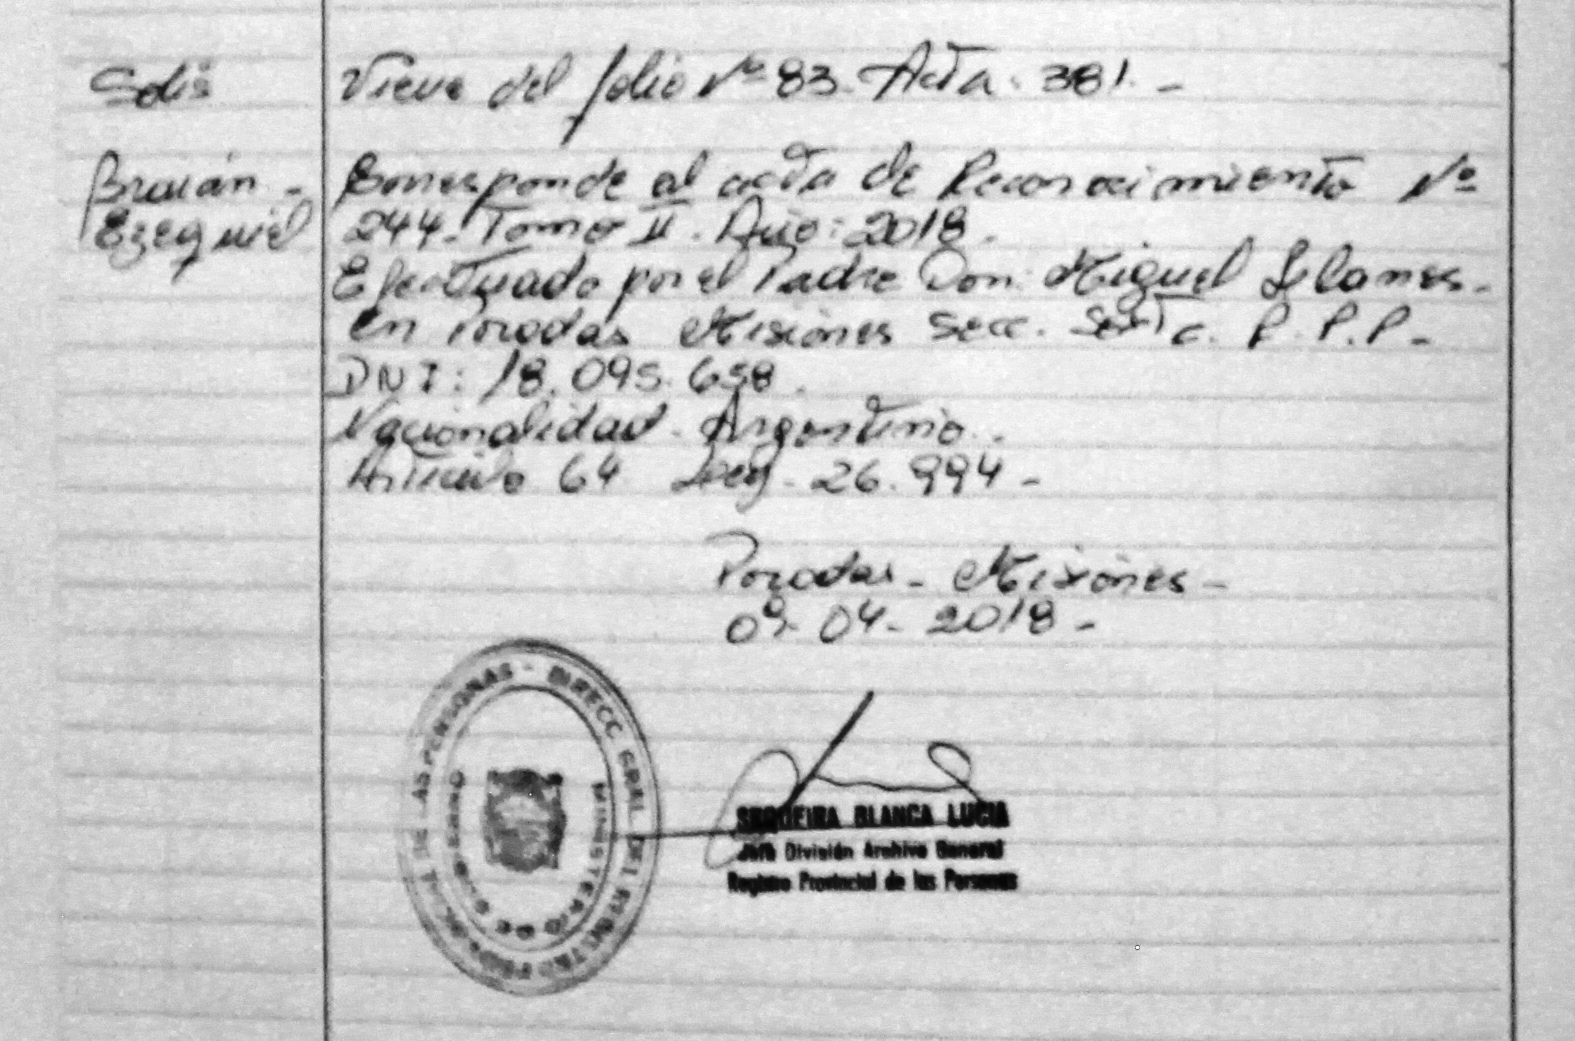 Solis
Viene del folio Nº 83. Acta. 381. -
Braian -
Ezequiel
Corresponde al acta de Reconocimiento Nº
244. Tomo II. Año: 2018.
Efectuado por el Padre Don: Miguel Llanes.
En Posadas Misiones Secc. P. P. P. -
DNI: 18.095.658.
Nacionalidad. Argentino.
Artículo 64 Ley. 26.994 -
Posadas - Misiones -
09. 04 - 2018 -
DIRECC. GRAL. DEL REGISTRO PROVINCIAL DE LAS PERSONAS -
MINISTERIO DE GOBIERNO
SEQUEIRA BLANCA LUCIA
Jefa División Archivo General
Registro Provincial de las Personas